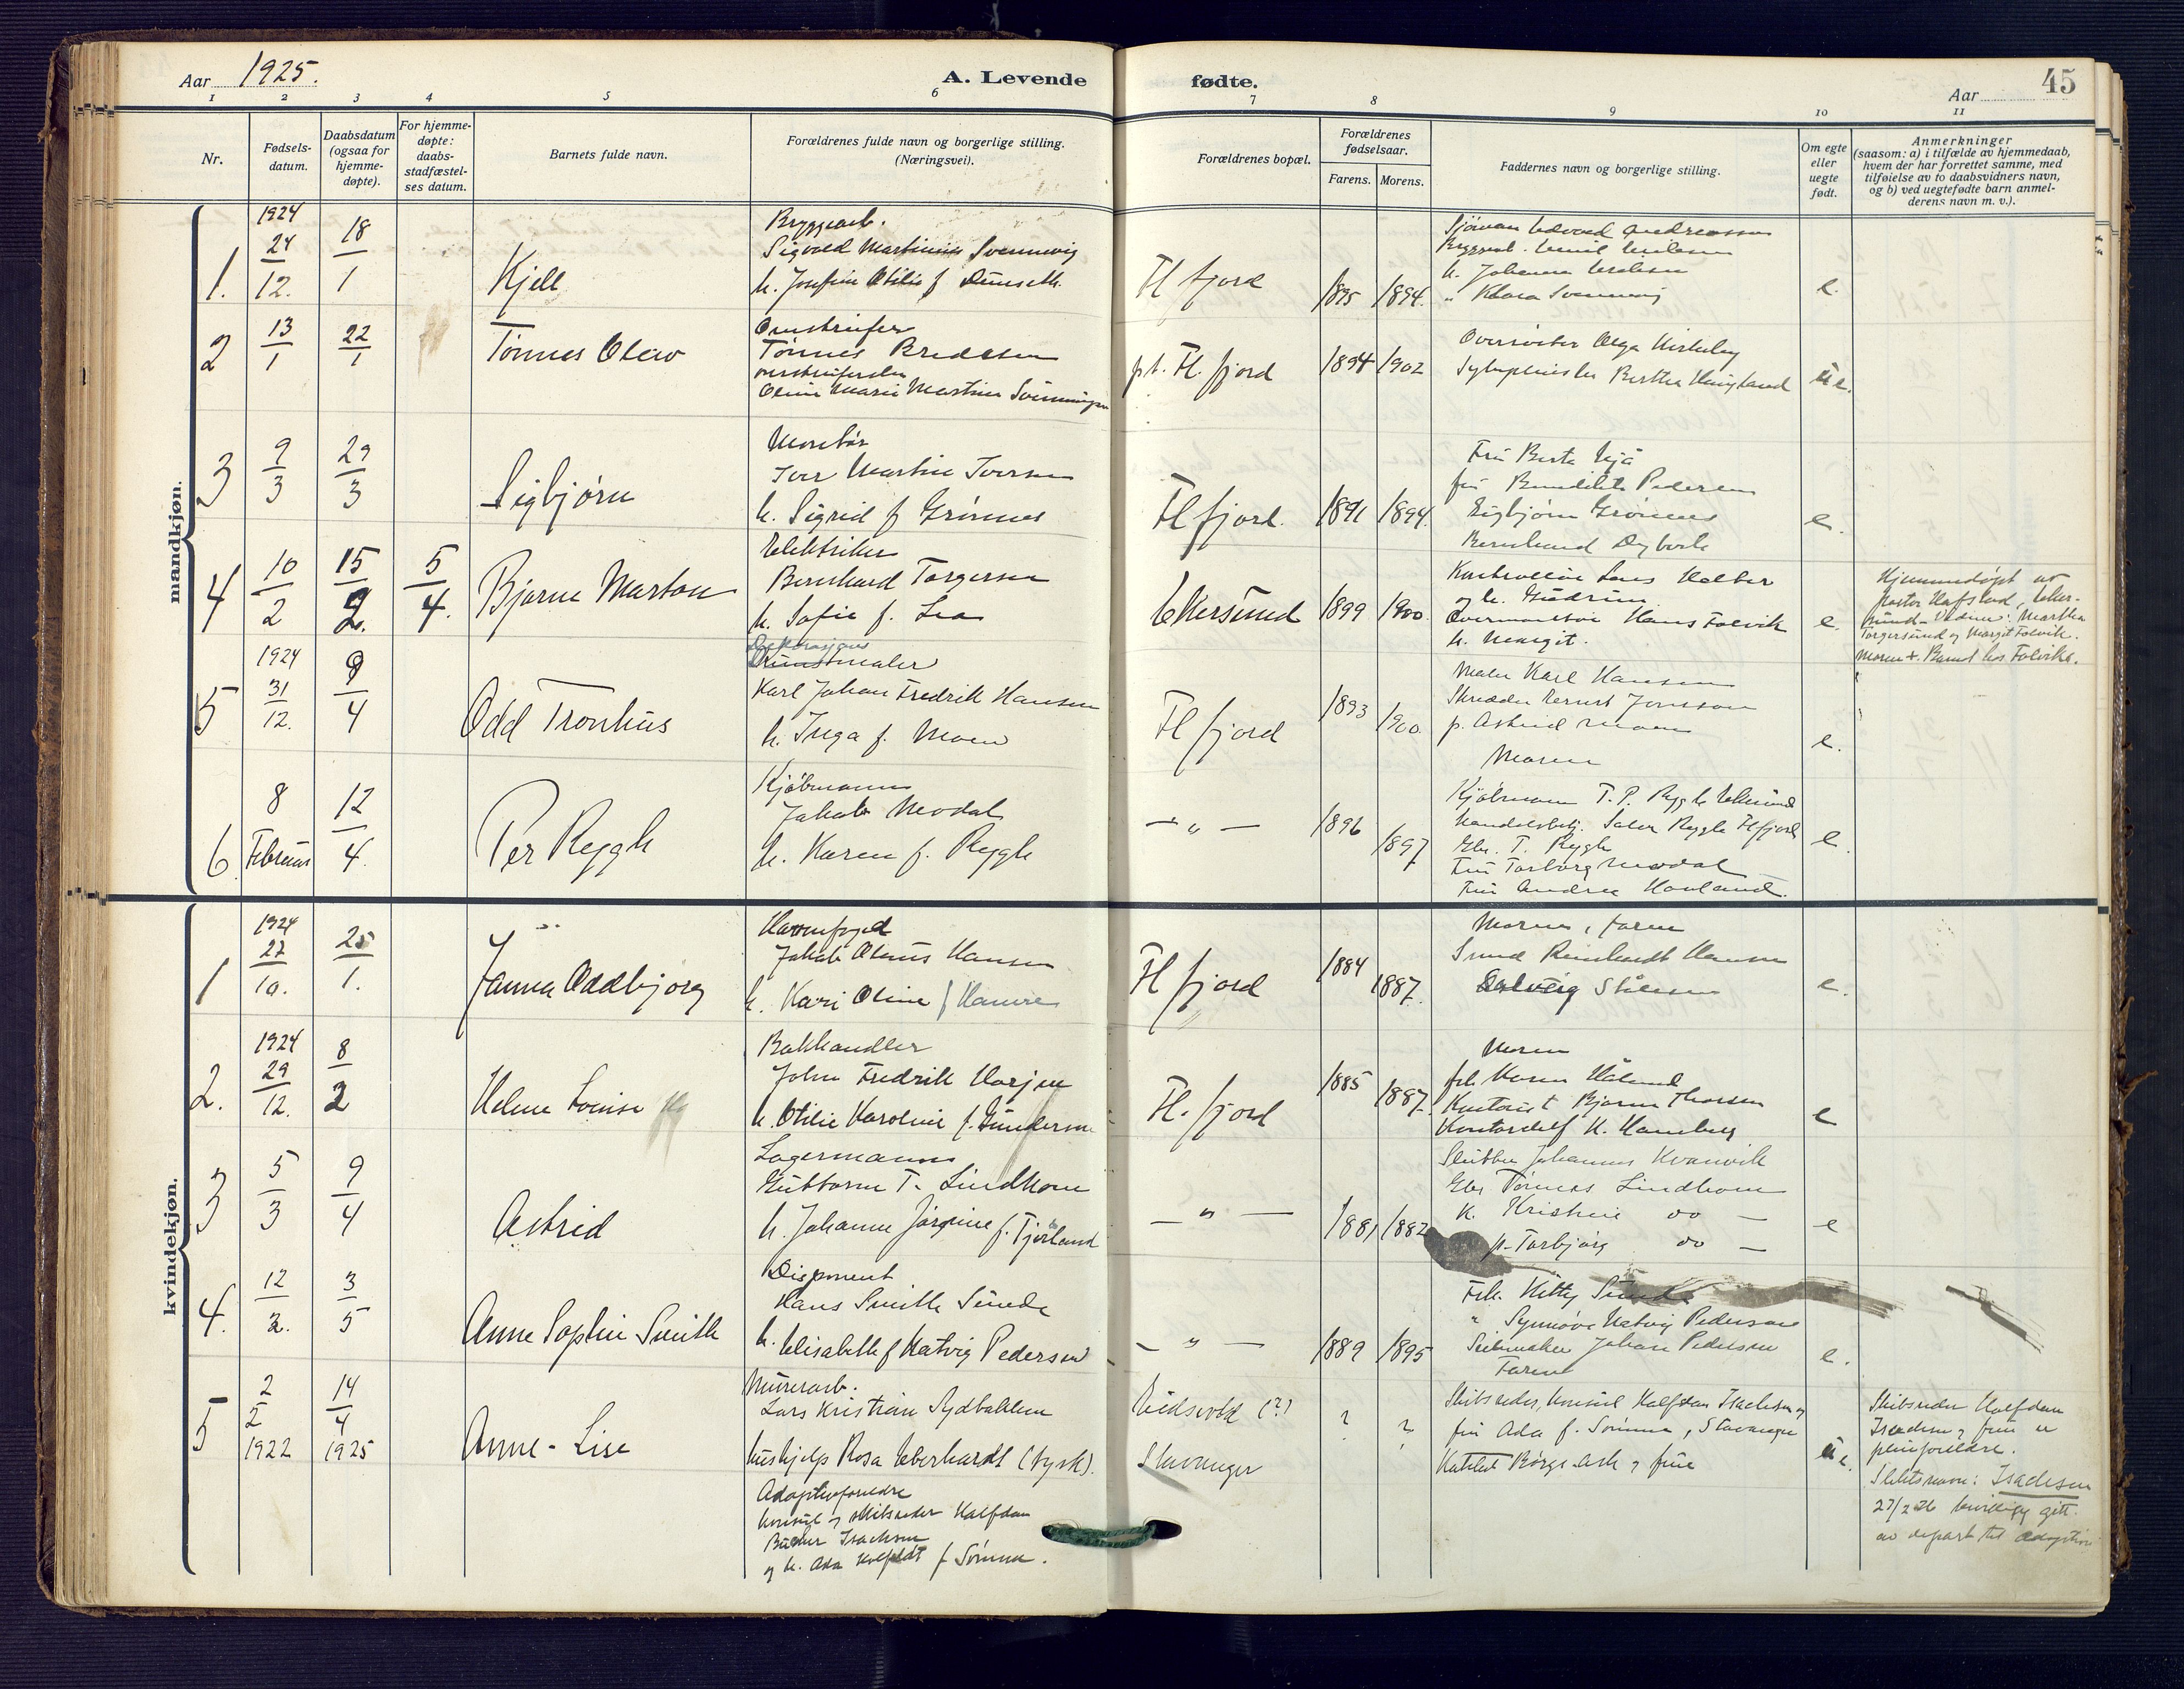 Aar 1925.
A. Levende fødte.
Aar
45
1 2 3 4 5 6 7 8 9 10 11
Nr.
Fødsels-
datum.
Daabsdatum
(ogsaa for
hjemme-
døpte).
For hjemme-
døpte:
daabs-
stadfæstel-
ses datum.
Barnets fulde navn.
Forældrenes fulde navn og borgerlige stilling.
(Næringsvei).
Forældrenes bopæl.
Forældrenes
fødselsaar.
Farens. Morens.
Faddernes navn og borgerlige stilling.
Om egte
eller
uegte
født.
Anmerkninger
(saasom: a) i tilfælde av hjemmedaab,
hvem der har forrettet samme, med
tilføielse av to daabsvidners navn,
og b) ved uegtefødte barn anmel-
derens navn m. v.).
mandkjøn.
1.
1924
24/12.
18/1
Kjell
Bryggearb.
Sigvald Martinius Svennevig
h. Josefine Otilie f
Fl fjord
1895 1894.
Sjömann Edvard Andreassen
Bryggearb. Emil
h. Johanna
" Klara Svennevig
e.
2
13/1
22/1
Tönnes Olav
Omstreifer
Tönnes Bredesen
omstreiferske
Oline Marie Martine
pt. Fl. fjord
1894 1902
Oversöster Olga Kirkeby
Sykepleierske Bertha Haugland
u e.
3
9/3
29/3
Sigbjørn
Iver Martin Iversen
h. Sigrid f Grønnes
Fl fjord.
1891 1894.
Fru Berta
fru Benedikte Pedersen
Sigbjørn Grønnes
Bernhard Dybvik
e.
4
10/2
15/2.
5/4.
Bjarne Marton
Elektriker
Bernhard Torgersen
h. Sofie f. Lea
Ekersund
1899 1900.
Kontrollör Lars
og h. Gudrun
Overmontör Hans Folvik
h. Margit.
e.
Hjemmedøpt av
pastor Hafstad, Eker-
sund. Vidner: Martha
Torgersund og Margit Folvik.
Moren +. Barnet hos Folvike.
5
1924
31/12.
9/4
Odd Tronhus
Dekorasjons
Kunstmaler
Karl Johan Fredrik Hansen
h. Inga f. Moen
Fl fjord
1893 1900.
Maler Karl Hansen
Skrædder Bernt Jonsson
p. Astrid Moen
Moren
e.
6.
8
Februar
12/4.
Per Rygh
Kjöbmann
Jakob Modal
h. Karen f. Rygh
— " —
1896 1897
Kjöbmann T. P. Rygh Ekersund
Handelsbetj. Rygh Flfjord
Gbr. T. Rygh
Fru Torborg Modal
Fru Andrea Hovland.
e.
kvindekjøn.
1
1924
22/10.
25/1.
Janna Oddbjørg
Havnefoged
Jakob Olaus Hansen
h. Kari Oline f Hamre
Fl fjord
1884 1887.
Moren, faren
Reinhardt Hansen
Solveig
e.
2.
1924
29/12.
8/2
Helene Louise
Bokhandler
John Fredrik
h. Otilie Karoline f. Gundersen
Fl. fjord
1885 1887.
Moren
frk Karen Håland
Kontorist Bjarne Thorsen
Kontorchef H. Hamberg
e
3
5/3
9/4
Astrid
Lagermann
Guttorm T. Lindhom
h. Johanne Jörgine f. Tjörland
— " —
1881 1882
Johannes Kvanvik
Gbr Tönnes Lindhom
h. Kristine do —
p. Torbjörg do —
e
4.
12/2.
3/5
Anne Sophie Smith
Disponent
Hans Smith Sunde
h. Elisabeth f Natvig Pedersen
— " —
1889 1895
Frk. Kitty Sunde
" Synnöve Natvig Pedersen
Seilmaker Johan Pedersen
Faren
e.
5
2/2
1922
14/4
1925
Anne-Lise
Murerarb.
Lars Kristian
hushjelp Rosa Eberhardt (tysk).
Adoptivforeldre
konsul og skibsreder Halfdan
Isachsen
og h. Ada f Sömme.
Eidsvold (?)
Stavanger
? ?
Skibsreder, konsul Halfdan Isachsen og
fru Ada f. Sömme, Stavanger
Børge Ask og frue
u e.
Skibsreder Halfdan
Isachsen og frue er
pleieforeldre.
Slektsnavn: Isachsen
27/2 26 bevilling gitt
av depart til adoption